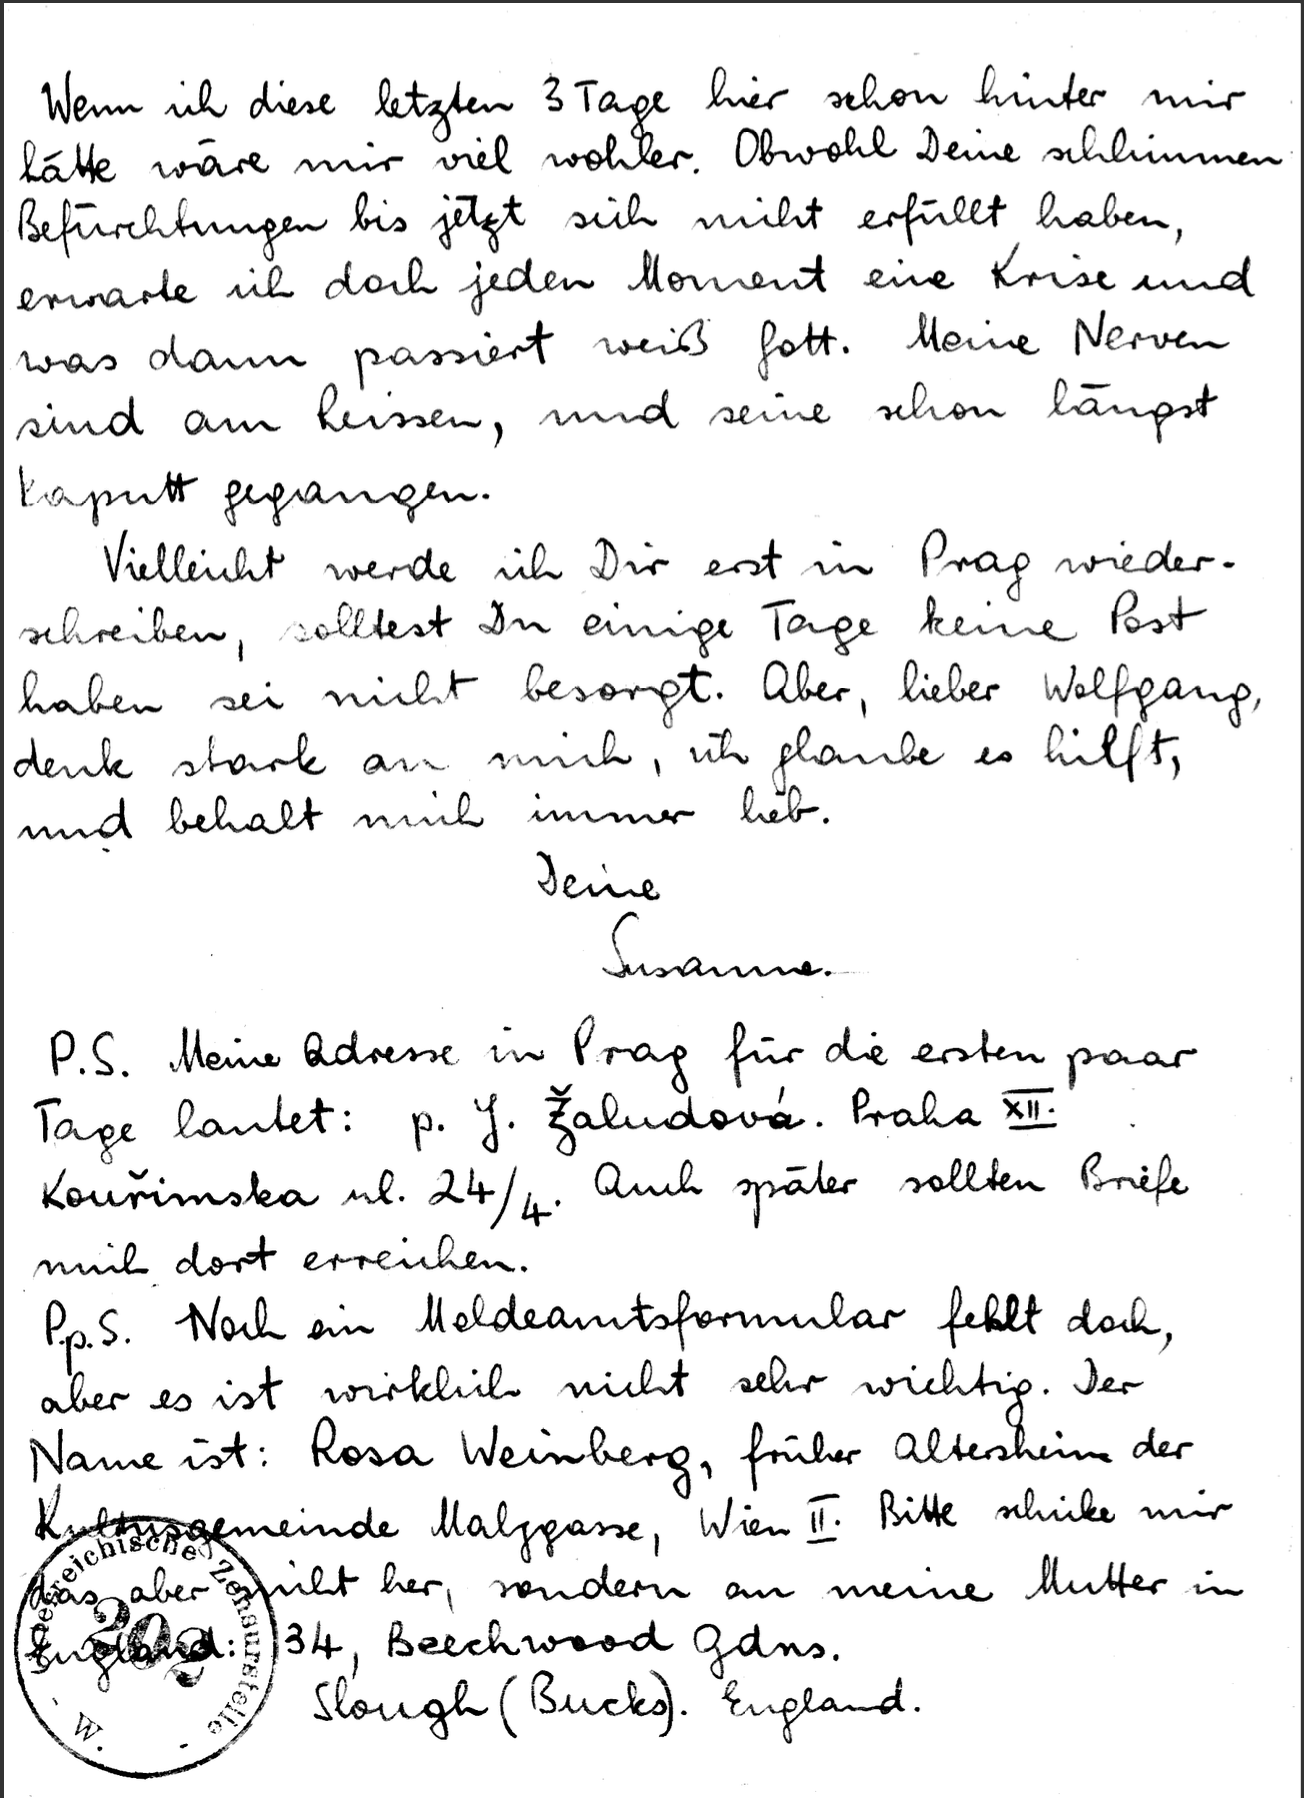 Wenn ich diese letzten 3 Tage hier schon hinter mir
hätte wäre mir viel wohler. Obwohl Deine schlimmen
Befürchtungen bis jetzt sich nicht erfüllt haben,
erwarte ich doch jeden Moment eine Krise und
was dann passiert weiß Gott. Meine Nerven
sind am Reissen, und seine schon längst
kaputt gegangen.
Vielleicht werde ich Dir erst in Prag wieder-
schreiben, solltest Du einige Tage keine Post
haben sei nicht besorgt. Aber, lieber Wolfgang,
denk stark an mich, ich glaube es hilft,
und behalt mich immer lieb.
Deine
Susanne.
P.S. Meine Adresse in Prag für die ersten paar
Tage lautet: p. J. Žaludová. Praha XII.
Kouřimska ul. 24/4. Auch später sollten Briefe
mich dort erreichen.
P.p.S. Noch ein Meldeamtsformular fehlt doch,
aber es ist wirklich nicht sehr wichtig. Der
Name ist: Rosa Weinberg, früher Altersheim der
Kultusgemeinde Malzgasse, Wien II. Bitte schicke mir
das aber nicht her, sondern an meine Mutter in
England: 34, Beechwood Gdns.
Slough (Bucks). England.
Österreichische Zensurstelle
202
- W. -